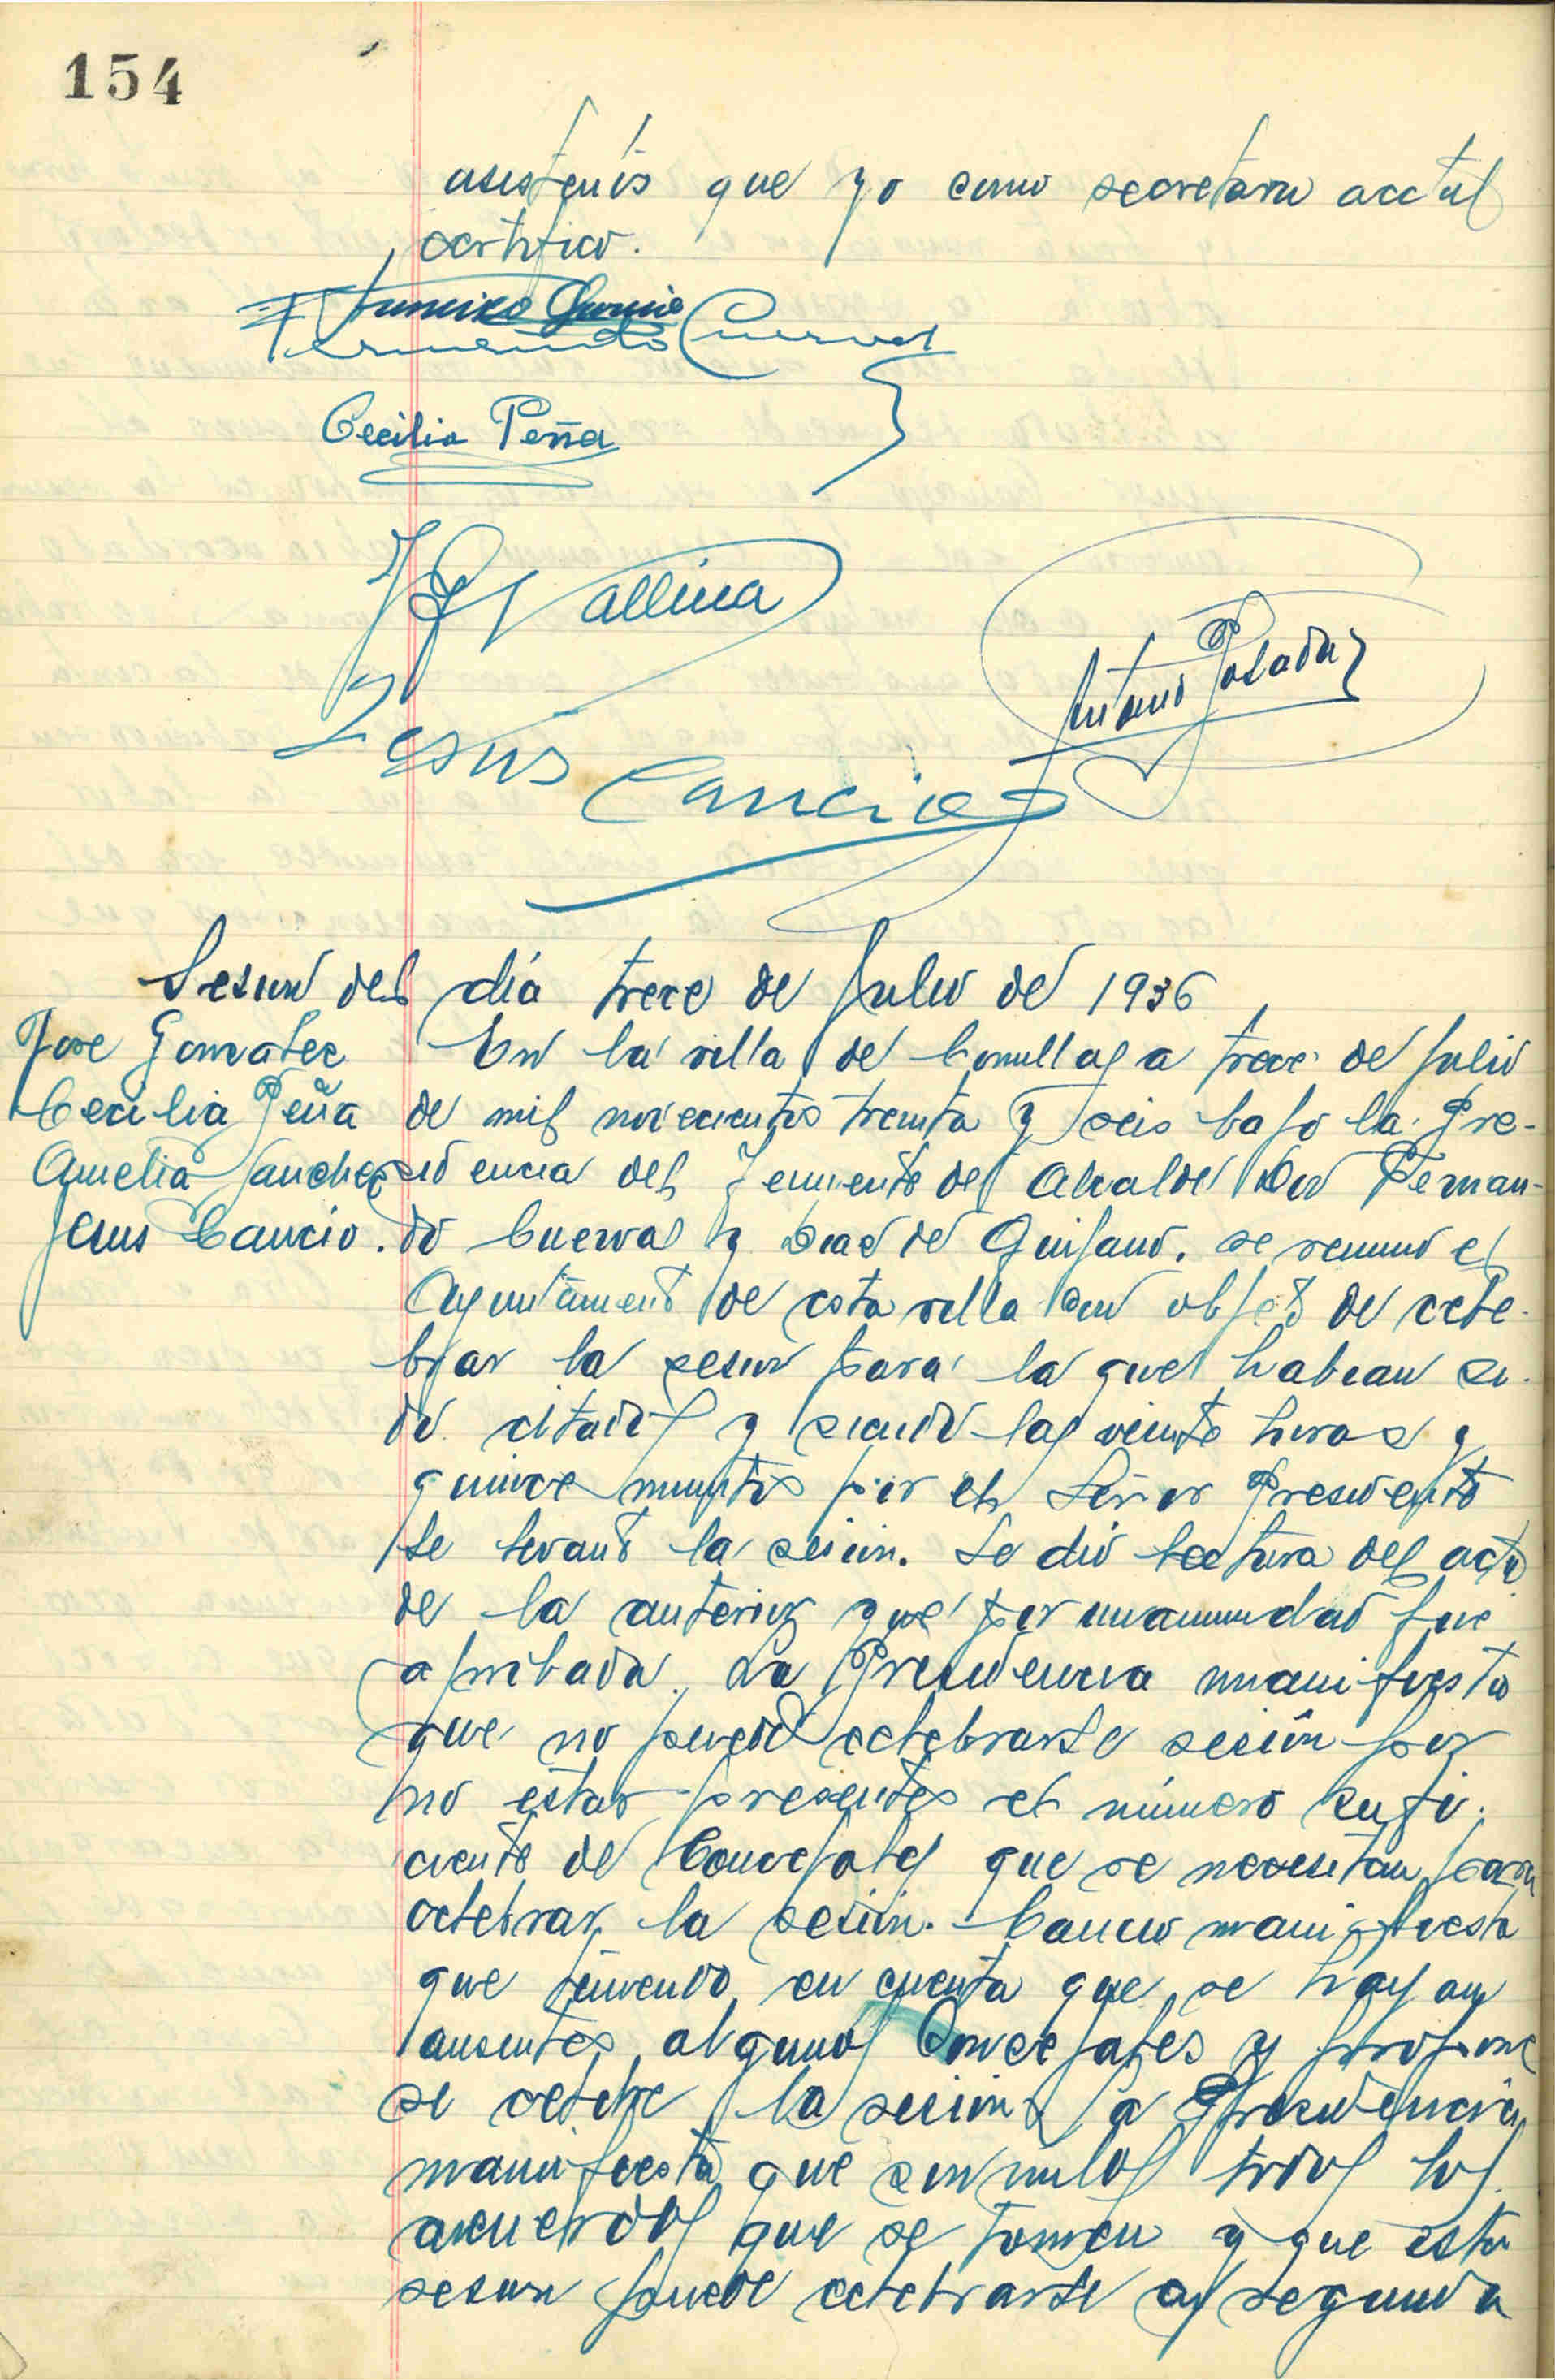 154
asistentes que yo como secretaria acctal
certifico.
Francisco Garcia
Fernando Cuevas
Cecilia Peña
Vallina
Antonio Posada
Jesús Cancio
Sesion del dia trece de Julio de 1936
Jose Gonzalez
Cecilia Peña
Amelia Sanchez
Jesus Cancio.
En la villa de Comillas a trece de Julio
de mil novecientos treinta y seis bajo la Pre-
sidencia del Teniente de Alcalde Don Fernan-
do Cuevas y Diaz de Quijano. se reunio el
Ayuntamiento de esta villa con objeto de cele-
brar la sesion para la que habian si-
do citados y siendo las veinte horas y
quince minutos por el Señor Presidente
se levantó la sesion. Se dió lectura del acta
de la anterior que por unanimidad fue
aprobada. La Presidencia manifiesta
que no puede celebrarse sesión por
no estar presentes el número sufi-
ciente de Concejales que se necesitan para
celebrar la sesión. Cancio manifiesta
que teniendo en cuenta que se hayan
ausentes algunos Concejales y propone
se celebre la sesion y la Presidencia
manifiesta que son nulos todos los
acuerdos que se tomen y que esta
sesion puede celebrarse a segunda